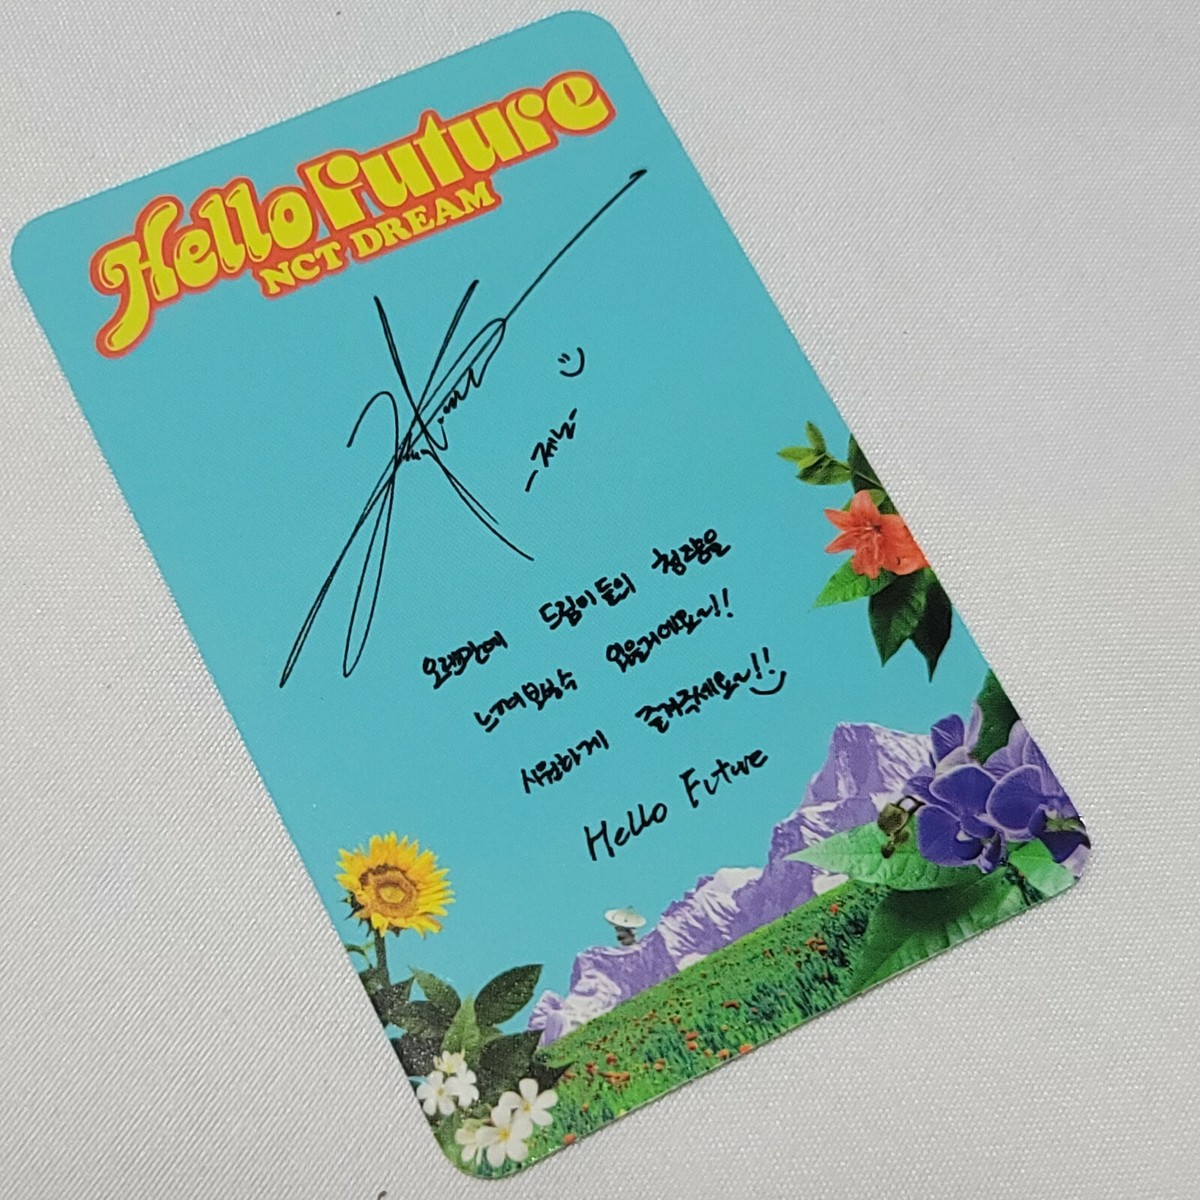 Hello Future
NCT DREAM
-제노-
오랜만에 드림이들의 청량을
느껴보실수 있을거에요~!!
시원하게 즐겨주세요~!!
Hello Future